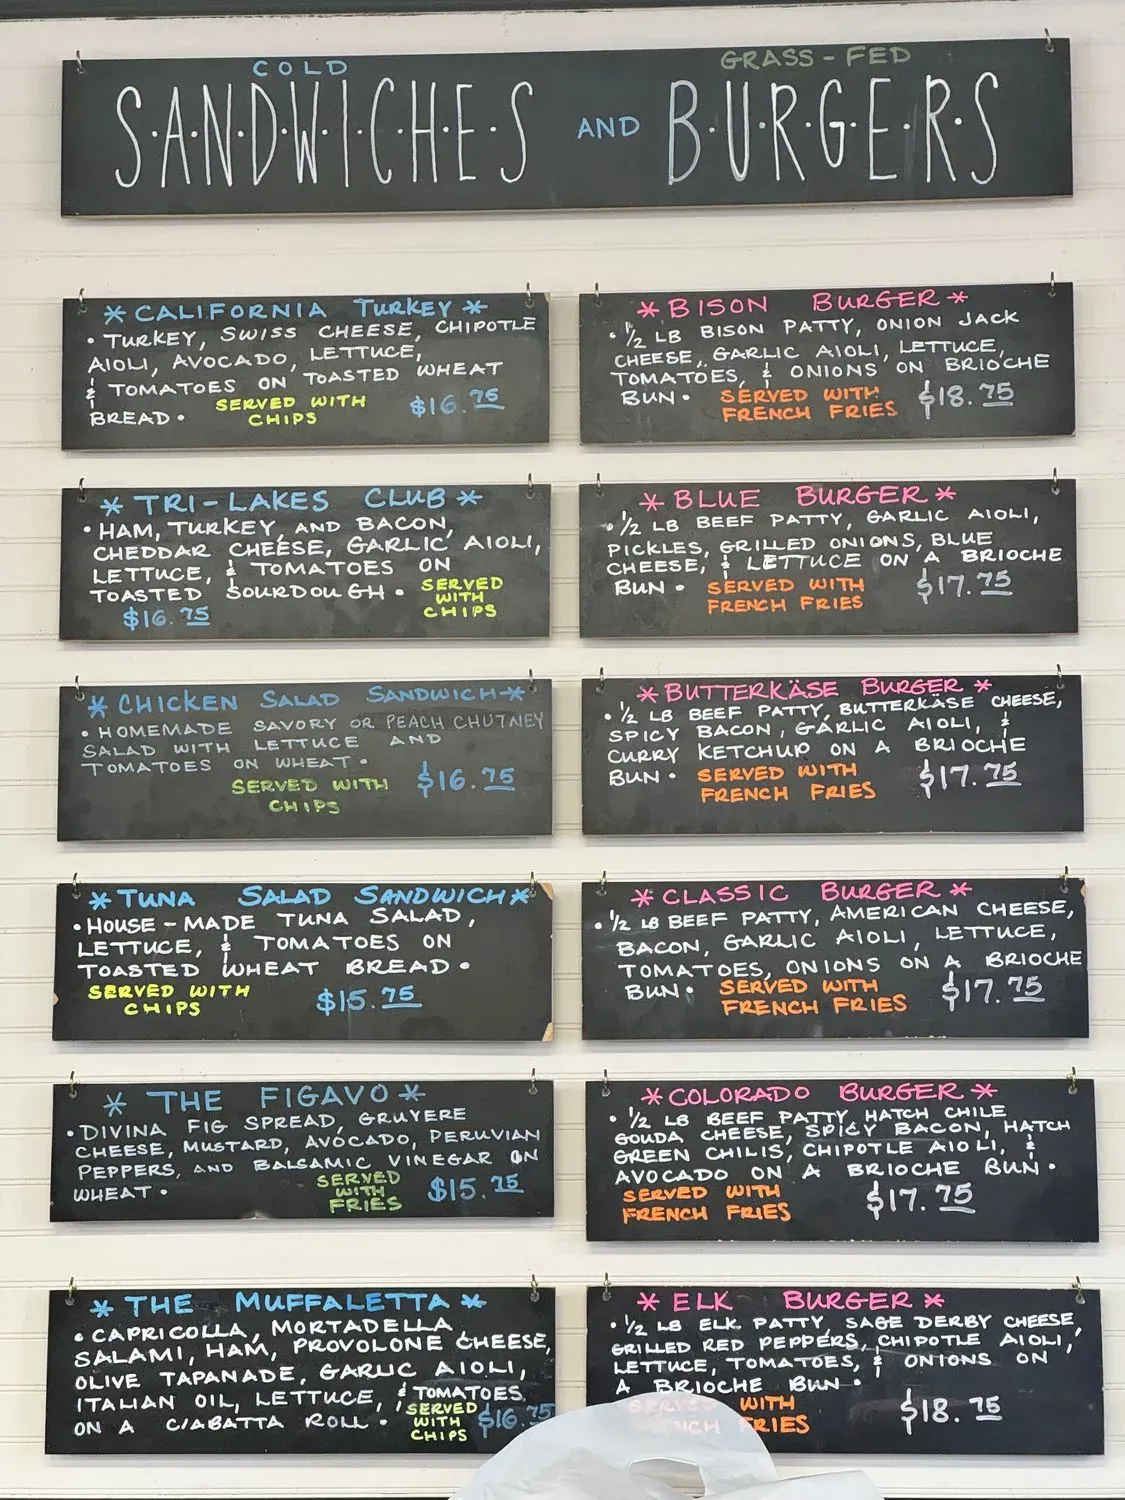 COLD
GRASS-FED
S·A·N·D·W·I·C·H·E·S AND B·U·R·G·E·R·S
* CALIFORNIA TURKEY *
• TURKEY, SWISS CHEESE, CHIPOTLE
AIOLI, AVOCADO, LETTUCE,
& TOMATOES ON TOASTED WHEAT
BREAD • SERVED WITH $16.75
CHIPS
* TRI-LAKES CLUB *
• HAM, TURKEY, AND BACON,
CHEDDAR CHEESE, GARLIC AIOLI,
LETTUCE, & TOMATOES ON
TOASTED SOURDOUGH • SERVED
WITH
$16.75 CHIPS
* CHICKEN SALAD SANDWICH *
• HOMEMADE SAVORY OR PEACH CHUTNEY
SALAD WITH LETTUCE AND
TOMATOES ON WHEAT •
SERVED WITH $16.75
CHIPS
* TUNA SALAD SANDWICH *
• HOUSE-MADE TUNA SALAD,
LETTUCE, & TOMATOES ON
TOASTED WHEAT BREAD •
SERVED WITH $15.75
CHIPS
* THE FIGAVO *
• DIVINA FIG SPREAD, GRUYERE
CHEESE, MUSTARD, AVOCADO, PERUVIAN
PEPPERS, AND BALSAMIC VINEGAR ON
WHEAT • SERVED $15.75
WITH
FRIES
* THE MUFFALETTA *
• CAPRICOLLA, MORTADELLA
SALAMI, HAM, PROVOLONE CHEESE,
OLIVE TAPANADE, GARLIC AIOLI,
ITALIAN OIL, LETTUCE, & TOMATOES
ON A CIABATTA ROLL • SERVED
WITH $16.75
CHIPS
* BISON BURGER *
• 1/2 LB BISON PATTY, ONION JACK
CHEESE, GARLIC AIOLI, LETTUCE,
TOMATOES, & ONIONS ON BRIOCHE
BUN • SERVED WITH $18.75
FRENCH FRIES
* BLUE BURGER *
• 1/2 LB BEEF PATTY, GARLIC AIOLI,
PICKLES, GRILLED ONIONS, BLUE
CHEESE, & LETTUCE ON A BRIOCHE
BUN • SERVED WITH $17.75
FRENCH FRIES
* BUTTERKÄSE BURGER *
• 1/2 LB BEEF PATTY, BUTTERKÄSE CHEESE,
SPICY BACON, GARLIC AIOLI, &
CURRY KETCHUP ON A BRIOCHE
BUN • SERVED WITH $17.75
FRENCH FRIES
* CLASSIC BURGER *
• 1/2 LB BEEF PATTY, AMERICAN CHEESE,
BACON, GARLIC AIOLI, LETTUCE,
TOMATOES, ONIONS ON A BRIOCHE
BUN • SERVED WITH $17.75
FRENCH FRIES
* COLORADO BURGER *
• 1/2 LB BEEF PATTY, HATCH CHILE
GOUDA CHEESE, SPICY BACON, HATCH
GREEN CHILIS, CHIPOTLE AIOLI, &
AVOCADO ON A BRIOCHE BUN •
SERVED WITH $17.75
FRENCH FRIES
* ELK BURGER *
• 1/2 LB ELK PATTY, SAGE DERBY CHEESE,
GRILLED RED PEPPERS, CHIPOTLE AIOLI,
LETTUCE, TOMATOES, & ONIONS ON
A BRIOCHE BUN •
SERVED WITH $18.75
FRENCH FRIES